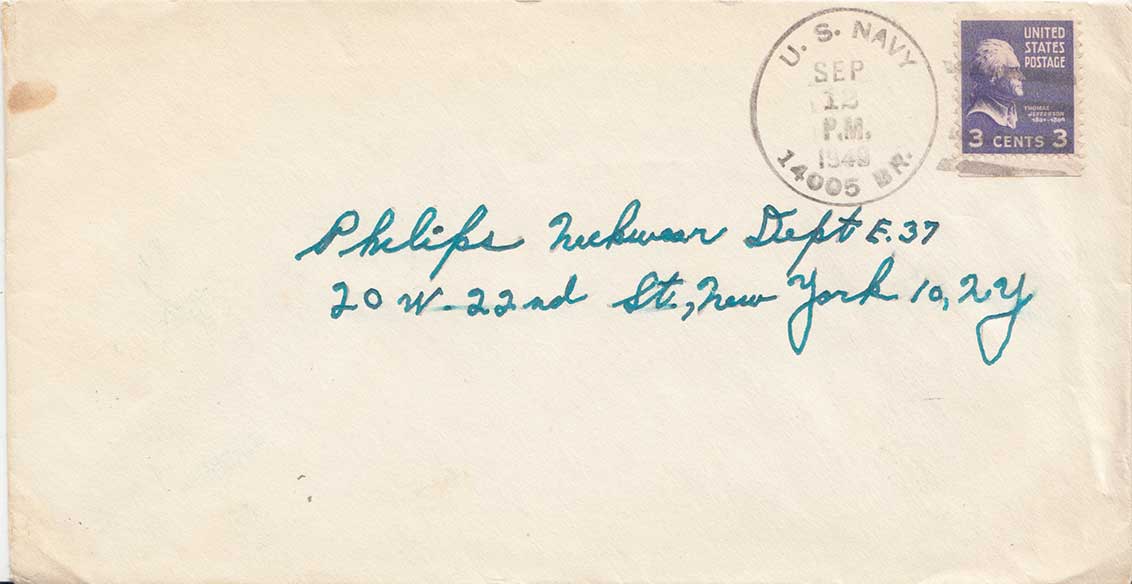 U. S. NAVY
SEP
12
P.M.
1949
14005 BR.
UNITED
STATES
POSTAGE
THOMAS
JEFFERSON
1801-1809
3 CENTS 3
Philips Neckwear Dept E.37
20 W. 22nd St., New York 10, N.Y